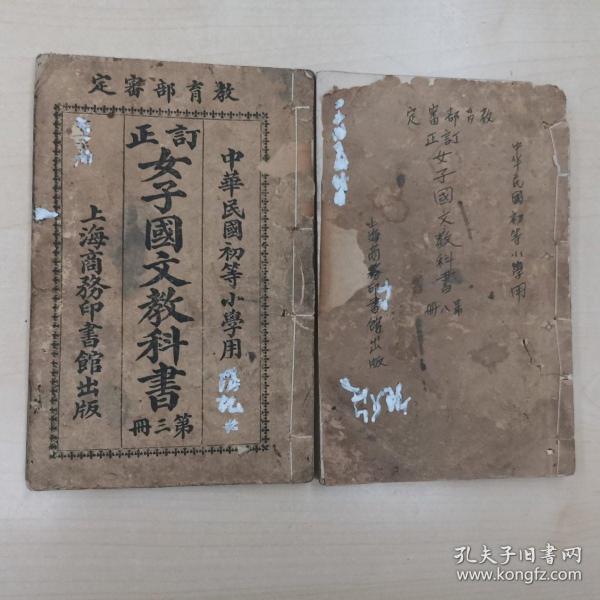 教育部審定
中華民國初等小學用
訂正
女子國文教科書
第三冊
上海商務印書館出版
教育部審定
中華民國初等小學用
訂正
女子國文教科書
第八冊
上海商務印書館出版
孔夫子旧书网
www.kongfz.com